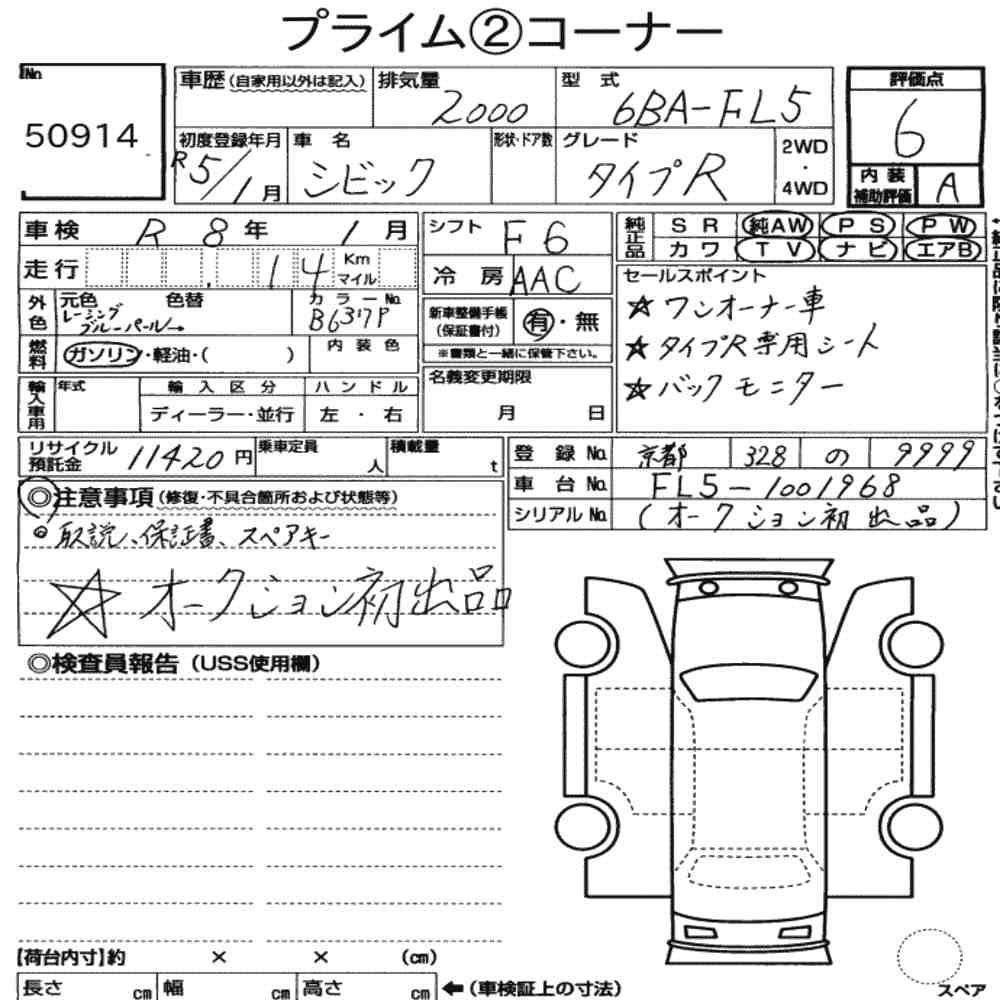 プライム②コーナー
No.
50914
車歴(自家用以外は記入)
排気量
2000
型式
6BA-FL5
評価点
6
初度登録年月
R5/1月
車名
シビック
形状・ドア数
グレード
タイプR
2WD
・
4WD
内装
補助評価
A
車検 R 8年 1月
シフト
F6
純正品
SR 純AW PS PW
カワ TV ナビ エアB
走行 14 Km
マイル
冷房 AAC
セールスポイント
☆ワンオーナー車
☆タイプR専用シート
☆バックモニター
外色
元色
レーシング
ブルーパール→
色替
カラーNo.
B637P
新車整備手帳
(保証書付)
有・無
※書類と一緒に保管下さい。
燃料
ガソリン・軽油・( )
内装色
輸入車用
年式
輸入区分
ディーラー・並行
ハンドル
左・右
名義変更期限
月 日
リサイクル
預託金
11420円
乗車定員
人
積載量
t
登録No. 京都 328 の 9999
車台No. FL5-1001968
シリアルNo. (オークション初出品)
◎注意事項(修復・不具合箇所および状態等)
◎取説、保証書、スペアキー
☆オークション初出品
◎検査員報告(USS使用欄)
【荷台内寸】約 × × (cm)
長さ cm 幅 cm 高さ cm ←(車検証上の寸法)
スペア